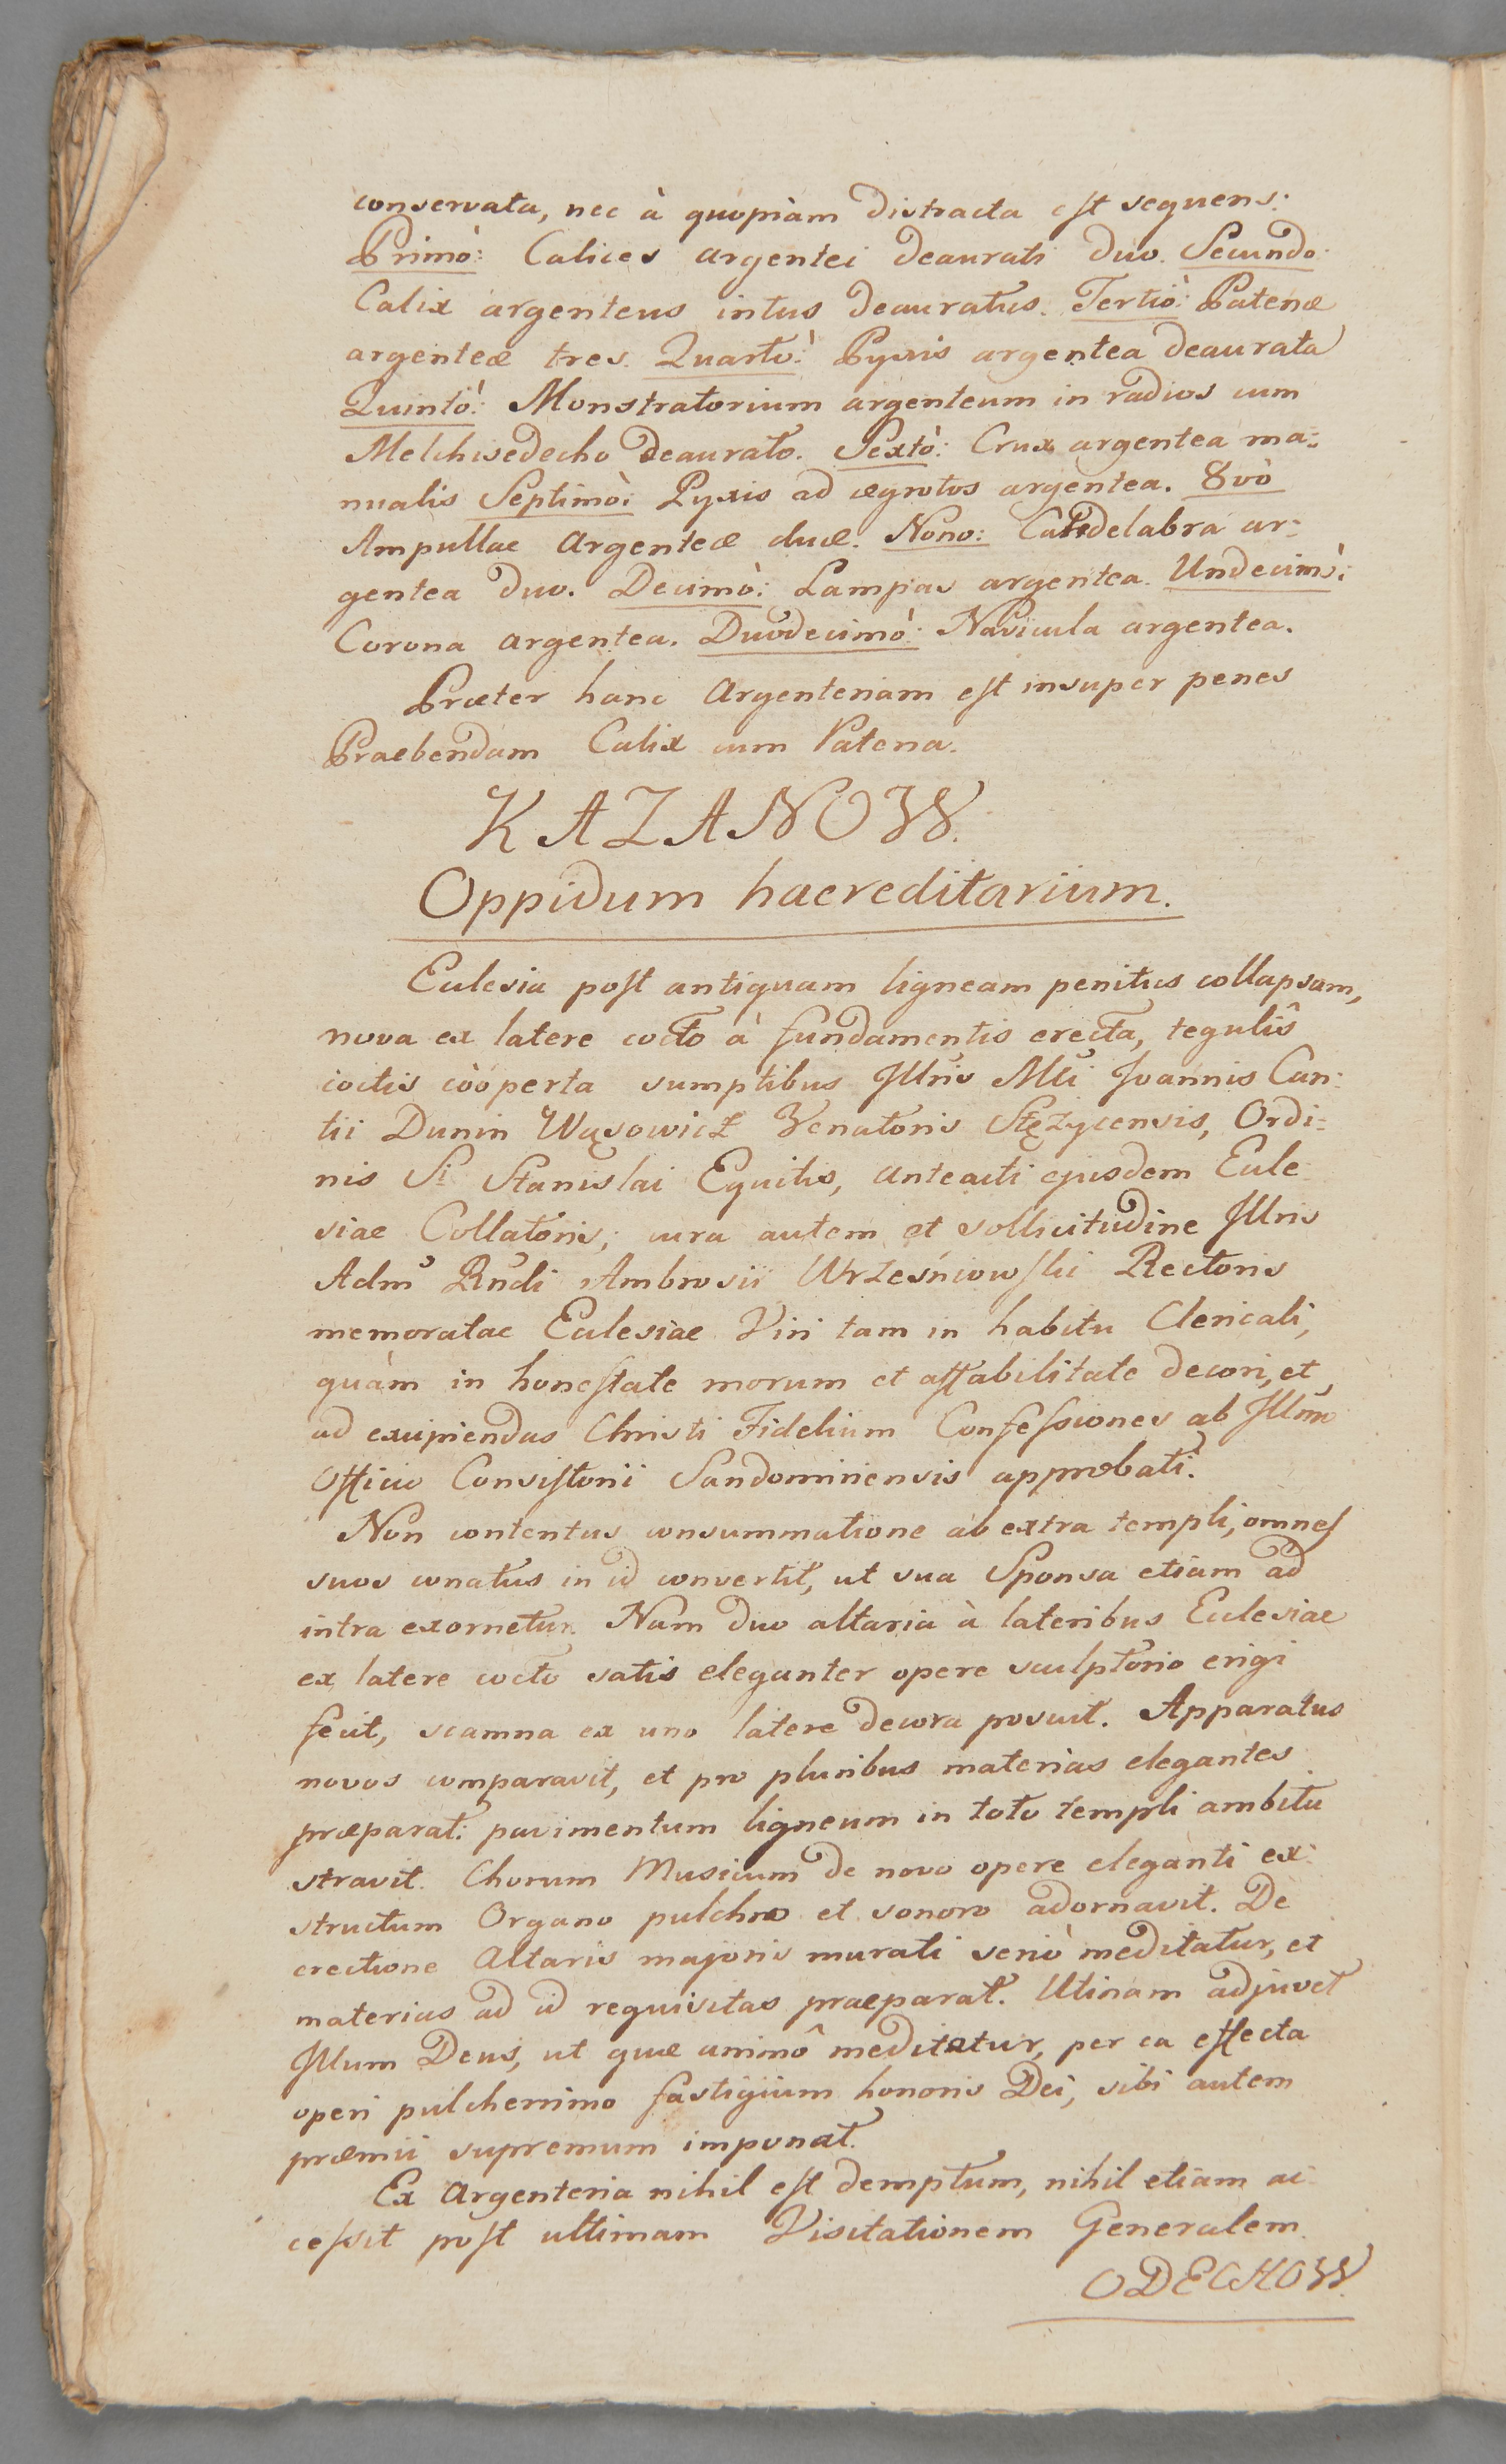 conservata, nec à quópiàm distracta est sequens:
Primò: Calices argentei deaurati duo. Secundo:
Calix argenteus intus deauratus. Tertiò: Patenæ
argenteæ tres. Quartò: Pyxis argentea deaurata
Quintò: Monstratorium argenteum in radios cum
Melchisedecho deaurato. Sextò: Crux argentea ma=
nualis Septimò: Pyxis ad ægrotos argentea. 8vò
Ampullae argenteæ duæ. Nono: Candelabra ar=
gentea duo. Decimò: Lampas argentea. Undecimò:
Corona argentea. Duodecimò: Navicula argentea.
Præter hanc argenteriam est insuper penes
Praebendam Calix cum Patena.
KAZANOW.
Oppidum haereditarium.
Ecclesia post antiquam ligneam penitus collapsam,
nova ex latere cocto à fundamentis erecta, tegulis
coctis coòperta sumptibus Illris Mli Joannis Can=
tii Dunin Wąsowicz Venatoris Stęzycensis, Ordi=
nis Si Stanislai Equitis, anteacti ejusdem Eccle
siae Collatoris; cura autem et sollicitudine Illris
Adm Rndi Ambrosii Wrześniowski Rectoris
memoratae Ecclesiae Viri tam in habitu Clericali,
quàm in honestate morum et affabilitate decori, et
ad excipiendas Christi Fidelium Confessiones ab Illmo
Officio Consistorii Sandomiriensis approbati.
Non contentus consummatione ab extra templi, omnes
suos conatus in id convertit, ut sua Sponsa etiam ad
intra exornetur. Nam duo altaria à lateribus Ecclesiae
ex latere cocto satis eleganter opere sculptorio erigi
fecit, scamna ex uno latere decora posuit. Apparatus
novos comparavit, et pro pluribus materias elegantes
præparat: pavimentum ligneum in toto templi ambitu
stravit. Chorum Musicum de novo opere eleganti ex
structum Organo pulchro et sonoro adornavit. De
erectione Altaris majoris murati seriò meditatur, et
materias ad id requisitas praeparat. Utinam adjuvet
Illum Deus, ut quæ animô meditatur, per ea effecta
operi pulcherrimo fastigium honoris Dei, sibi autem
præmii supremum imponat.
Ex Argenteria nihil est demptum, nihil etiam ac
cessit post ultimam Visitationem Generalem.
ODECHOW.